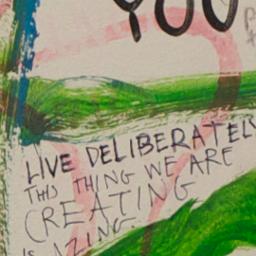 YOU
LIVE DELIBERATELY
THIS THING WE ARE
CREATING
IS